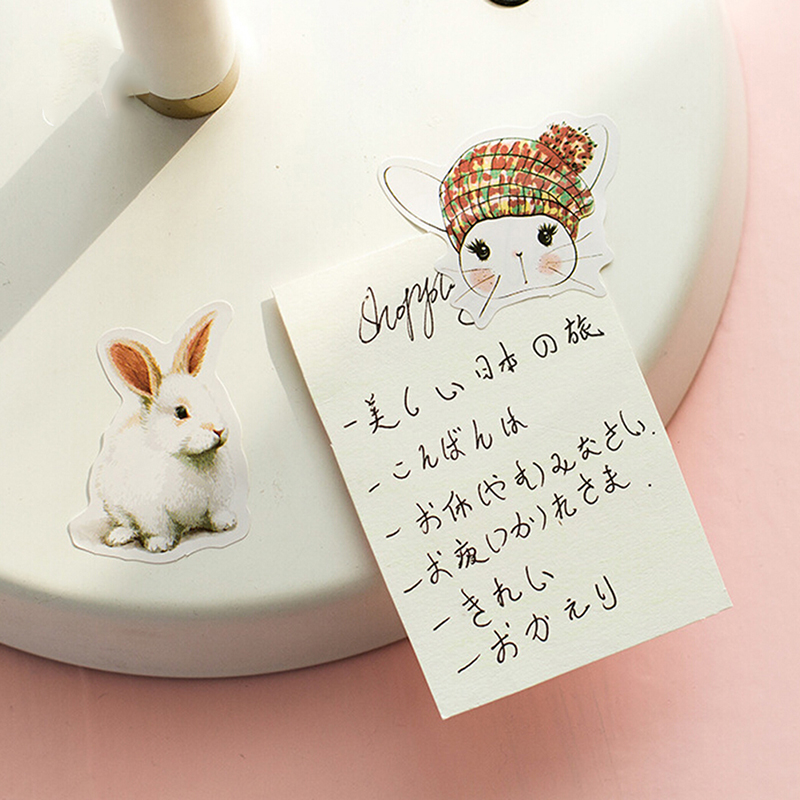 Shopping
-美しい日本の旅
-こんばんは
-お休(やす)みなさい.
-お疲(つか)れさま.
-きれい
-おかえり